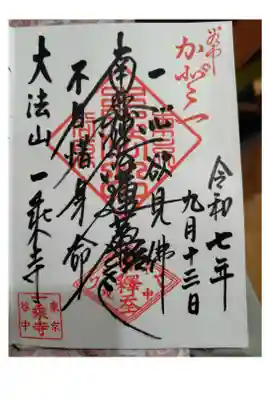 令和七年
九月十三日
一心欲見佛
南無妙法蓮華経
不自惜身命
大法山 一乗寺
東京
一乗寺
谷中